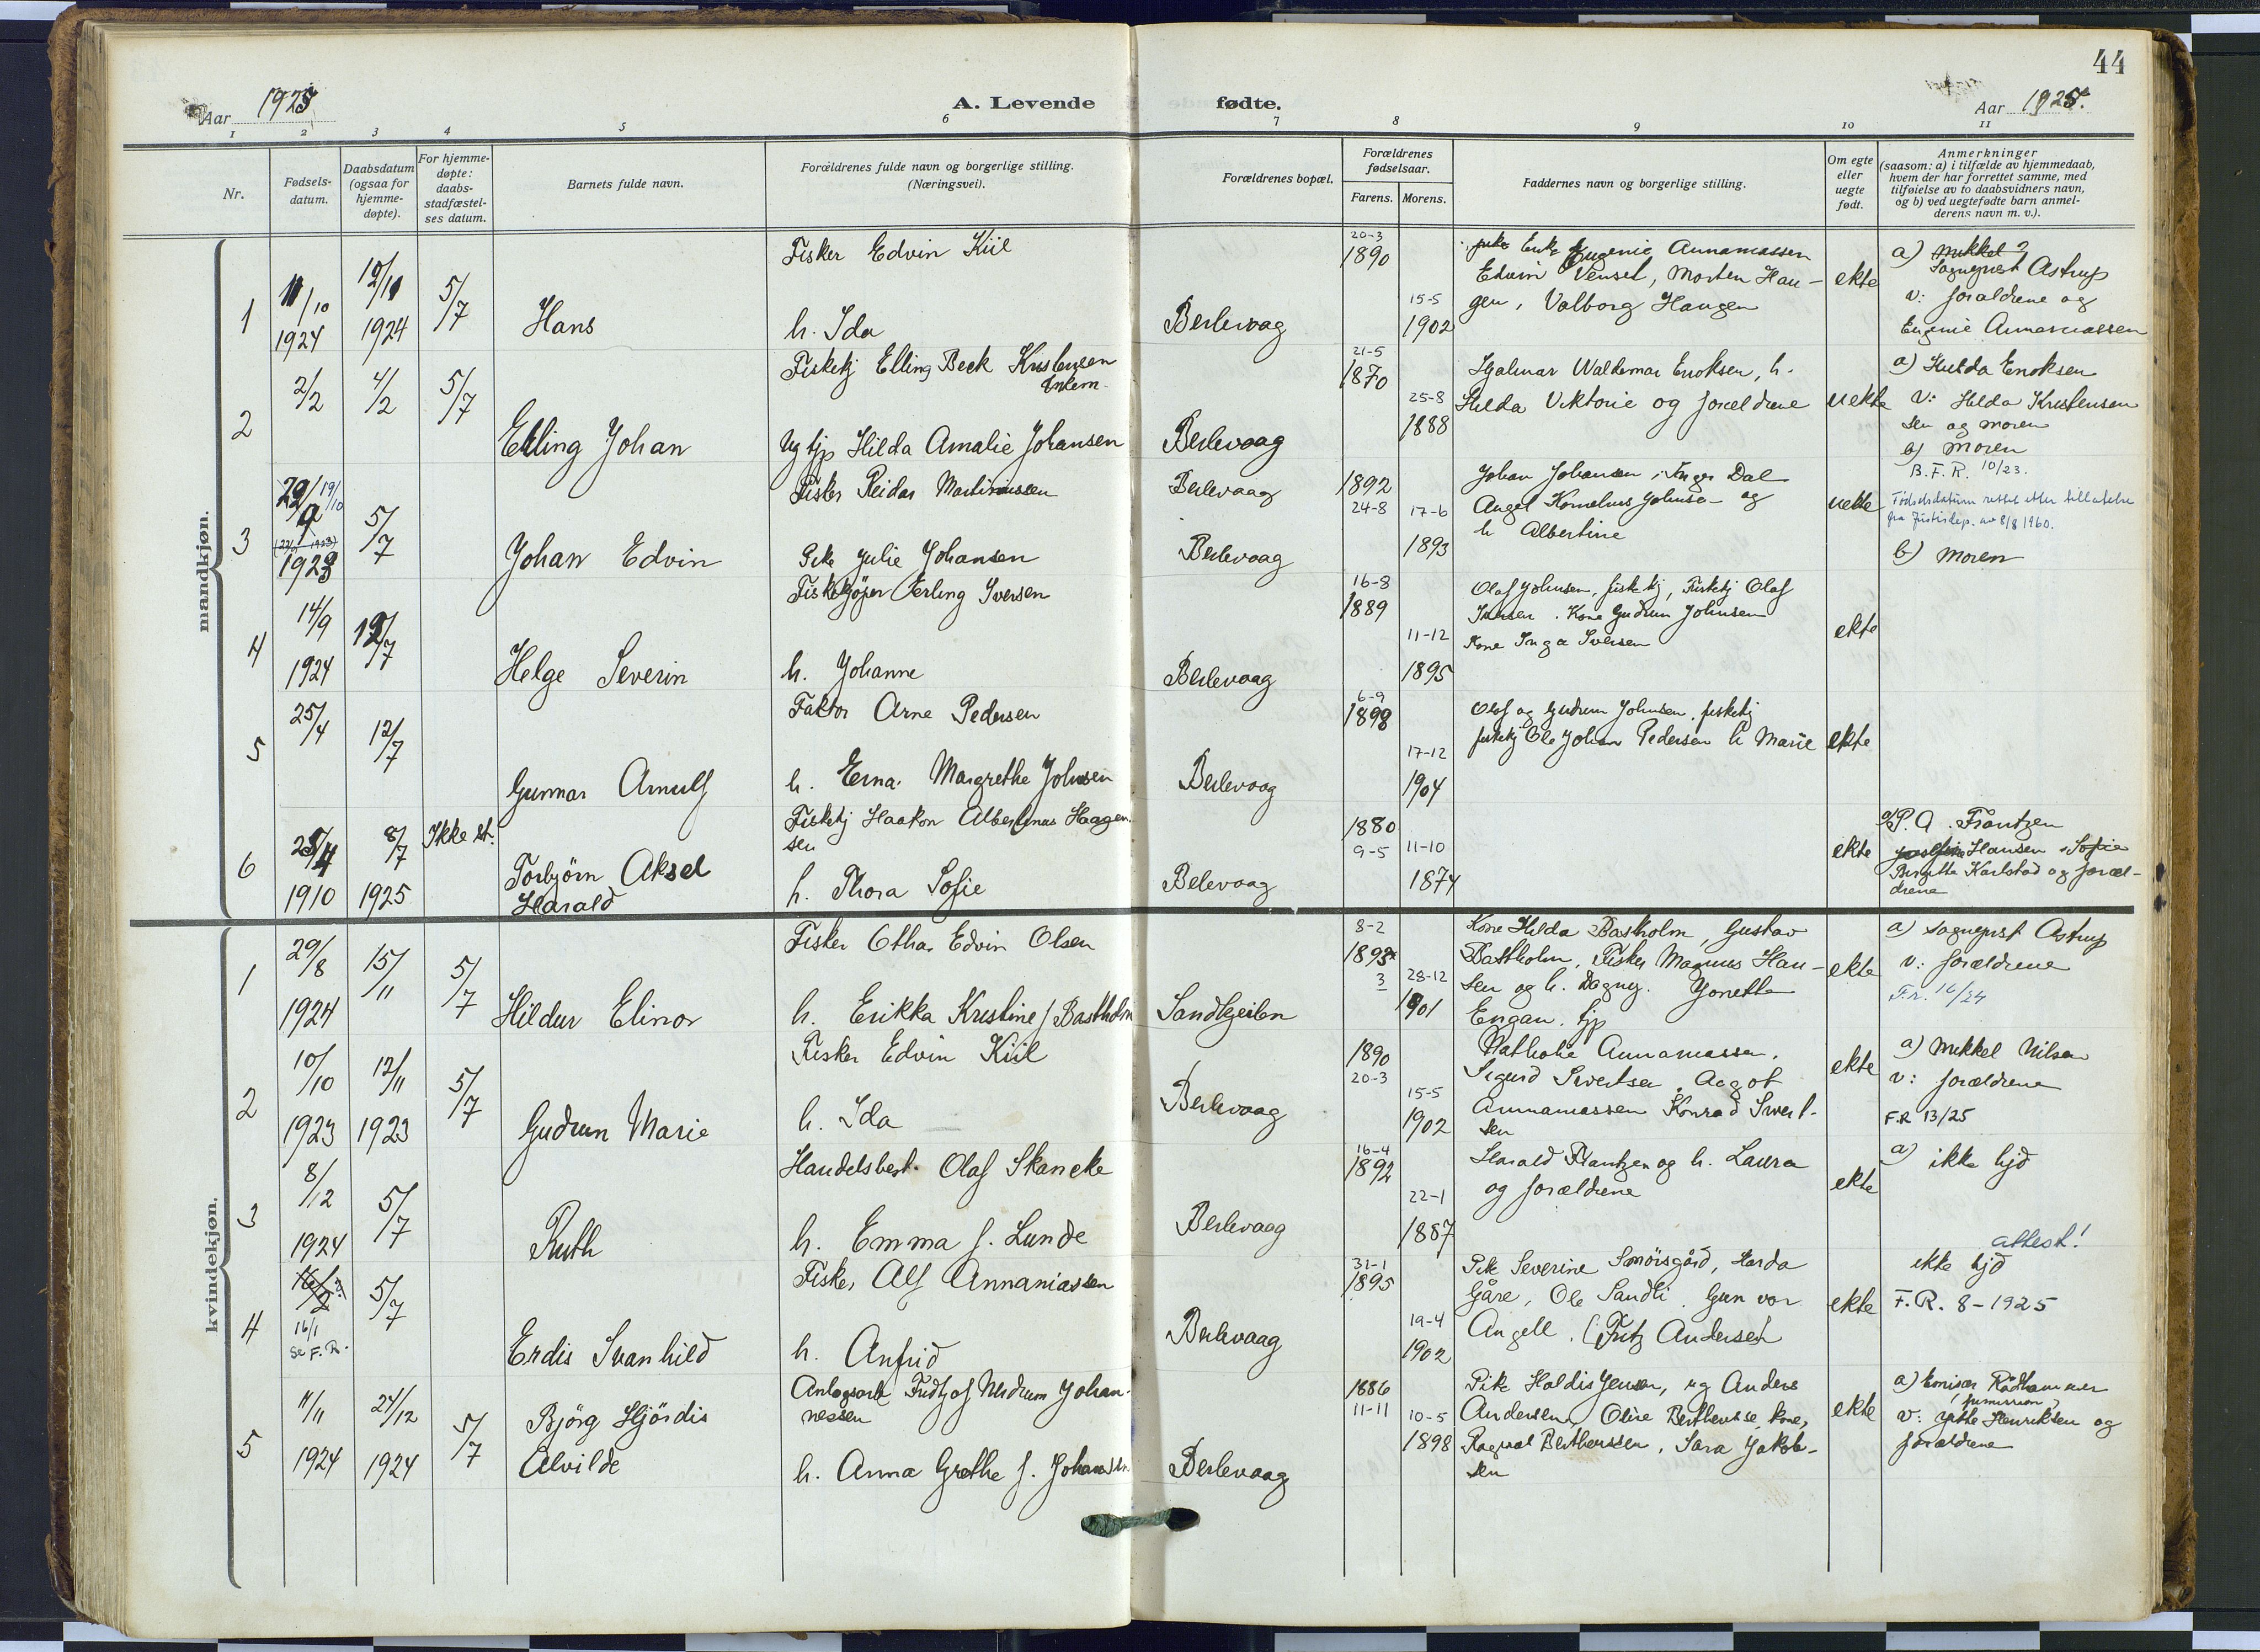 44
Aar 1925
A. Levende fødte.
Aar 1925.
1 2 3 4 5 6 7 8 9 10 11
Nr.
Fødsels-
datum.
Daabsdatum
(ogsaa for
hjemme-
døpte).
For hjemme-
døpte:
daabs-
stadfæstel-
ses datum.
Barnets fulde navn.
Forældrenes fulde navn og borgerlige stilling.
(Næringsvei).
Forældrenes bopæl.
Forældrenes
fødselsaar.
Farens. Morens.
Faddernes navn og borgerlige stilling.
Om egte
eller
uegte
født.
Anmerkninger
(saasom: a) i tilfælde av hjemmedaab,
hvem der har forrettet samme, med
tilføielse av to daabsvidners navn,
og b) ved uegtefødte barn anmel-
derens navn m. v.).
mandkjøn.
1
11/10
1924
12/11
1924
5/7
Hans
Fisker Edvin Kiil
h. Ida
Berlevaag
20-3
1890
15-5
1902
Enke Eugenie Annamassen
Edvin Vensel, Morten Hau-
gen, Valborg Haugen
ekte
a) Mikkel
Sogneprest Astrup
v: forældrene og
Eugenie Annamassen
2
2/2
4/2
5/7
Elling Johan
Fiskekj Elling Beck Kristensen
Ug tjp Hilda Amalie Johansen
Berlevaag
21-5
1870
25-8
1888
Hjalmar Waldemar Enoksen, h.
Hilda Viktorie og forældrene
uekte
a) Hulda Enoksen
v: Hilda Kristensen
og moren
b) Moren
B.F.R. 10/23.
3
29/9 19/10
1923
5/7
Johan Edvin
Fisker Reidar Martinussen
Pike Julie Johansen
Berlevaag
Berlevaag
1892
24-8
17-6
1893
Johan Johansen, Inger Dal
Angel Kornelius Johnsen og
h Albertine
uekte
Fødselsdatum rettet etter tillatelse
fra Justisdep. av 8/8 1960.
b) Moren
4
14/9
1924
12/7
Helge Severin
Fiskekjöper Erling Iversen
h. Johanne
Berlevaag
16-8
1889
11-12
1895
Olaf Johnsen, fiskekj, Fiskekj Olaf
Iversen. Kone Gudrun Johnsen
Kone Inga Iversen
ekte
5
25/4
12/7
Gunnar Arnulf
Faktor Arne Pedersen
h. Erna Margrethe Johnsen
Berlevaag
6-9
1898
17-12
1904
Olaf og Gudrun Johnsen, fiskekj
fiskekj Ole Johan Pedersen h Marie
ekte
6
1910
8/7
1925
Ikke st.
Torbjörn Aksel
Harald
Fiskekj Haakon Albertinus Haagen-
sen
h. Thora Sofie
Belevaag
1880
9-5
11-10
1874
ekte
P. A. Frantzen
Hansen Sofie
Birgitte Karlstad og foræl-
drene
kvindekjøn.
1
29/8
1924
15/11
5/7
Hildur Elinor
Fisker Othar Edvin Olsen
h. Erikka Kristine f Bastholm
Sandkjeilen
8-2
1893
3
28-12
1901
Kone Hilda Bastholm, Gustav
Bastholm, Fisker Magnus Han-
sen og h. Dagny. Jonette
Engan. tjp
ekte
a) sogneprest Astrup
v: forældrene
F.r. 16/24
2
10/10
1923
12/11
1923
5/7
Gudrun Marie
Fisker Edvin Kiil
h. Ida
Berlevaag
1890
20-3
15-5
1902
Nathalie Annamassen.
Sigurd Sivertsen. Aagot
Annamassen Konrad Sivert-
sen
ekte
a) Mikkel Nilsen
v: forældrene
F.R 13/25
3
8/12
1924
5/7
Ruth
Handelsbest. Olaf Skancke
h. Emma f. Lunde
Berlevaag
16-4
1892
22-1
1887
Harald Frantzen og h. Laura
og forældrene
ekte
a) ikke hjd
4
16/1
Se F. R.
5/7
Erdis Svanhild
Fisker Alf Annaniassen
h. Anfrid
Berlevaag
31-1
1895
19-4
1902
Pike Severine Smörsgård, Harda
Gåre, Ole Sandli. Gunvor
Angell. Fritz Andersen
ekte
attest!
ekte hjd
F.R. 8-1925
5
11/11
1924
24/12
1924
5/7
Björg Hjördis
Alvilde
Anlegsarb Fridtjof Nerdrum Johan-
nessen
h. Anna Grethe f. Johansen
Berlevaag
1886
11-11
10-5
1898
Pike Haldis Jensen, ug Anders
Andersen, Oline Berthensen, kone,
Ragnval Berthensen, Sara Jakob-
sen
ekte
a) Emisær Rådhammer
v: Henriksen og
forældrene